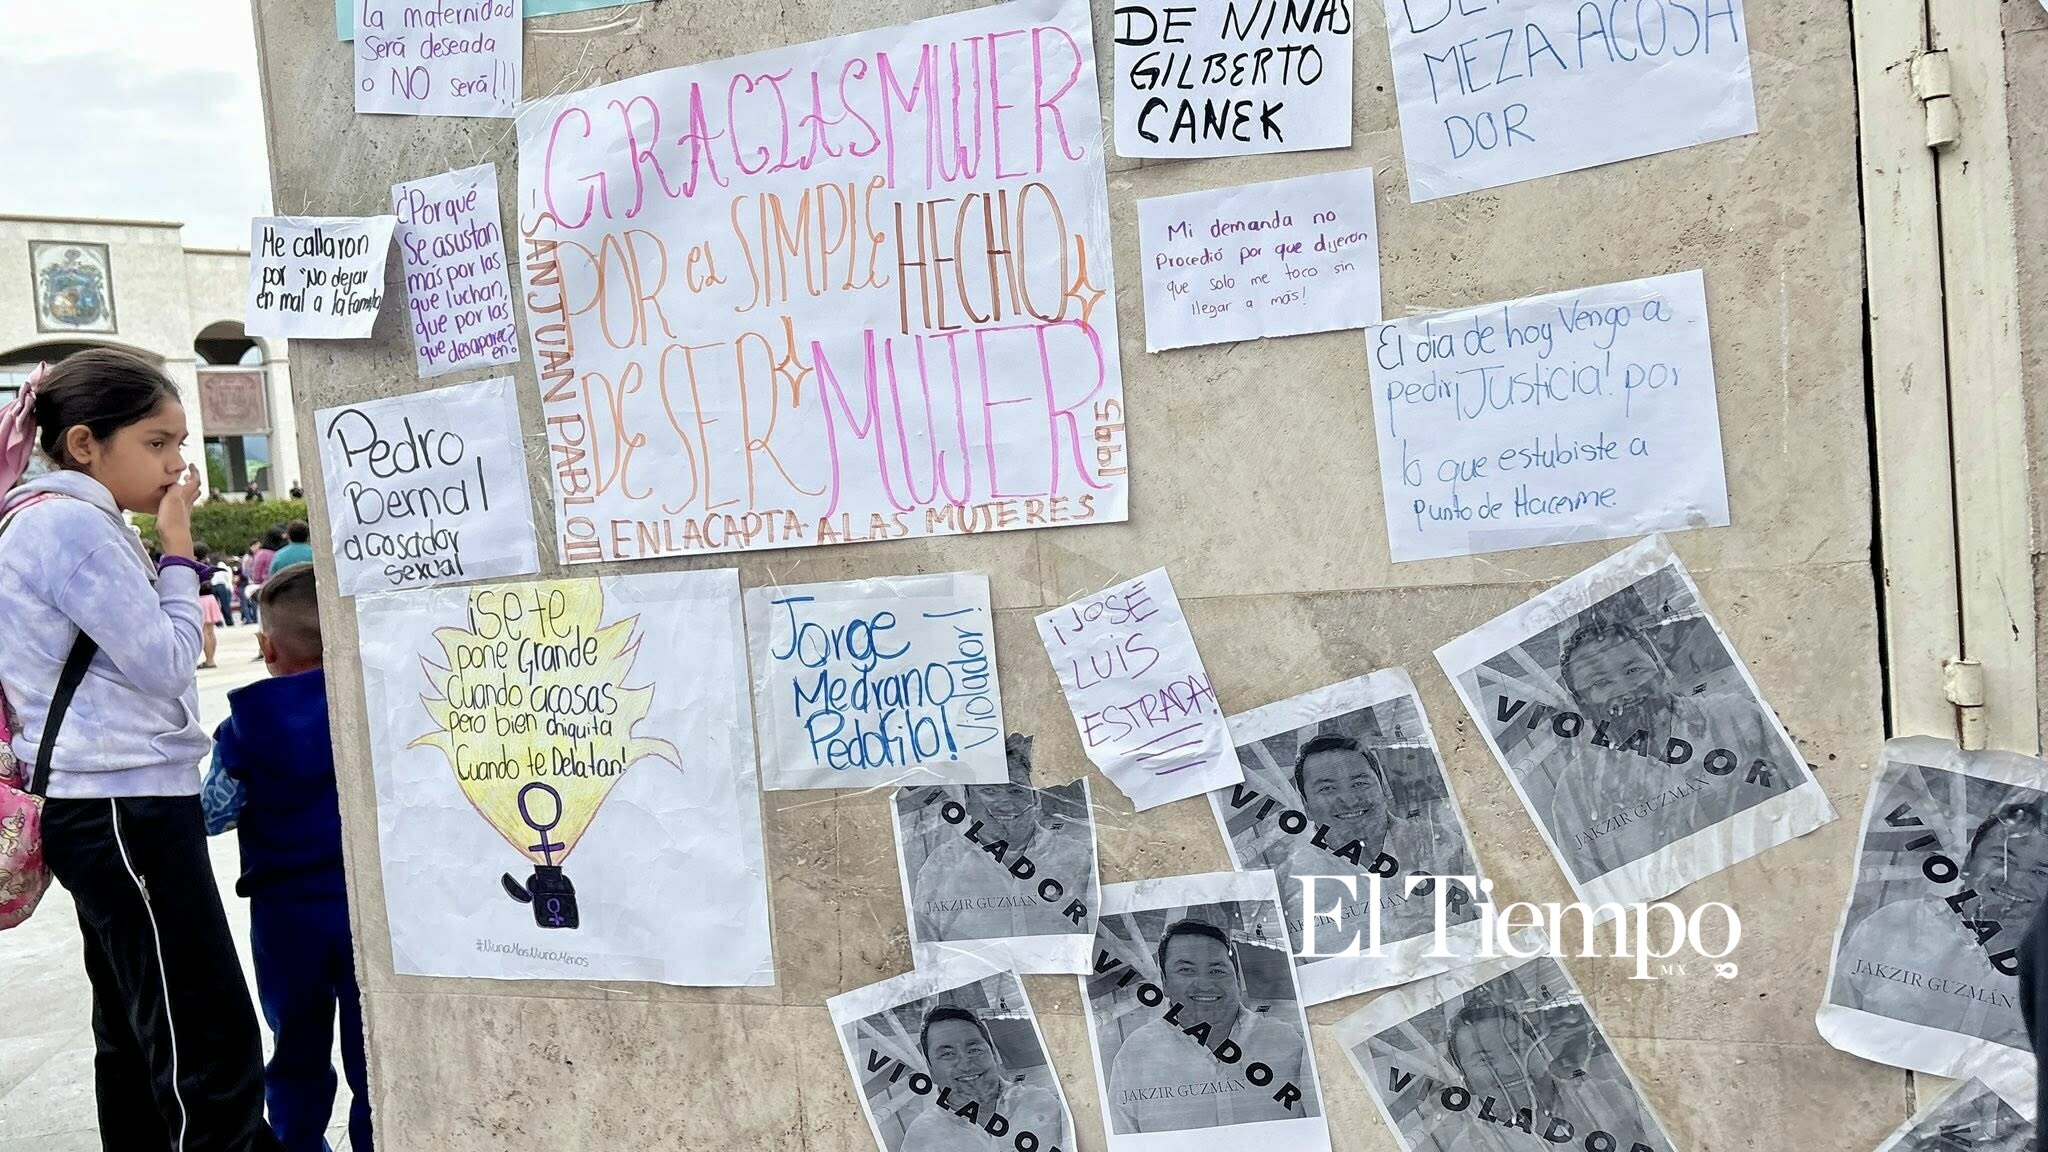 La maternidad
Será deseada
o NO será!!!
GRACIAS MUJER
POR el SIMPLE HECHO
DE SER MUJER
-SAN JUAN PABLO II
1995
EN LA CAPTA A LAS MUJERES
DE NIÑAS
GILBERTO
CANEK
MEZA ACOSA
DOR
Me callaron
por "No dejar
en mal a la familia
¿Por qué
Se asustan
más por las
que luchan,
que por las
que desaparec
en?
Mi demanda no
Procedió por que dijeron
que solo me toco sin
llegar a más!
El dia de hoy Vengo a
pedir ¡Justicia! por
lo que estubiste a
punto de Hacerme.
Pedro
Bernal
acosador
sexual
¡Se te
pone Grande
Cuando acosas
pero bien chiquita
Cuando te Delatan!
#NiunaMasNiunaMenos
Jorge
Medrano
Pedofilo!
Violador!
¡JOSÉ
LUIS
ESTRADA!
VIOLADOR
JAKZIR GUZMÁN
VIOLADOR
JAKZIR GUZMÁN
IOLADOR
JAKZIR GUZMÁN
VIOLADOR
JAKZIR GUZMÁN
VIOLADOR
JAKZIR GUZMÁN
VIOLADOR
VIOLADOR
El Tiempo
MX